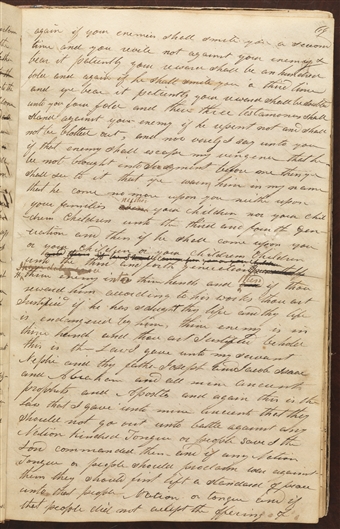 69
again if your enemies shall smite you a second
time and you revile not against your enemy &
bear it patiently your reward shall be an hundred
fold and again if he shall smite you a third time
and ye bear it patiently your reward shall be doubled
unto you four fold and these three testamonies shall
stand against your enemy if he repent not and shall
not be blotted out, and now verily I say unto you
if that enemy shall escape my vengence that he
be not brought into Judgment before me then ye
shall see to it that ye warn him in my name
that he come no more upon you neither upon
your families neither your children nor your chil
drens Children unto the third and fourth gen
eration and then if he shall come upon you
or your children or your childrens Children
unto the third and forth generation
thine enemy into thine hands and then if thou
reward him according to his works thou art
Justified if he has saught thy life and thy life
is endangered by him, thine enemy is in
thine hands and thou art Justified behold
this is the Law I gave unto my servant
Nephi and thy fathers Joseph and Jacob Isaac
and Abraham and all mine ancient
prophets and Apostles and again this is the
law that I gave unto mine ancients that they
should not go out unto battle against any
Nation kindred Tongue or people save I the
Lord commanded them and if any Nation
Tongue or people should proclaim war against
them they should first lift a standard of peace
unto that people Nation or tongue and if
that people did not accept the offering of